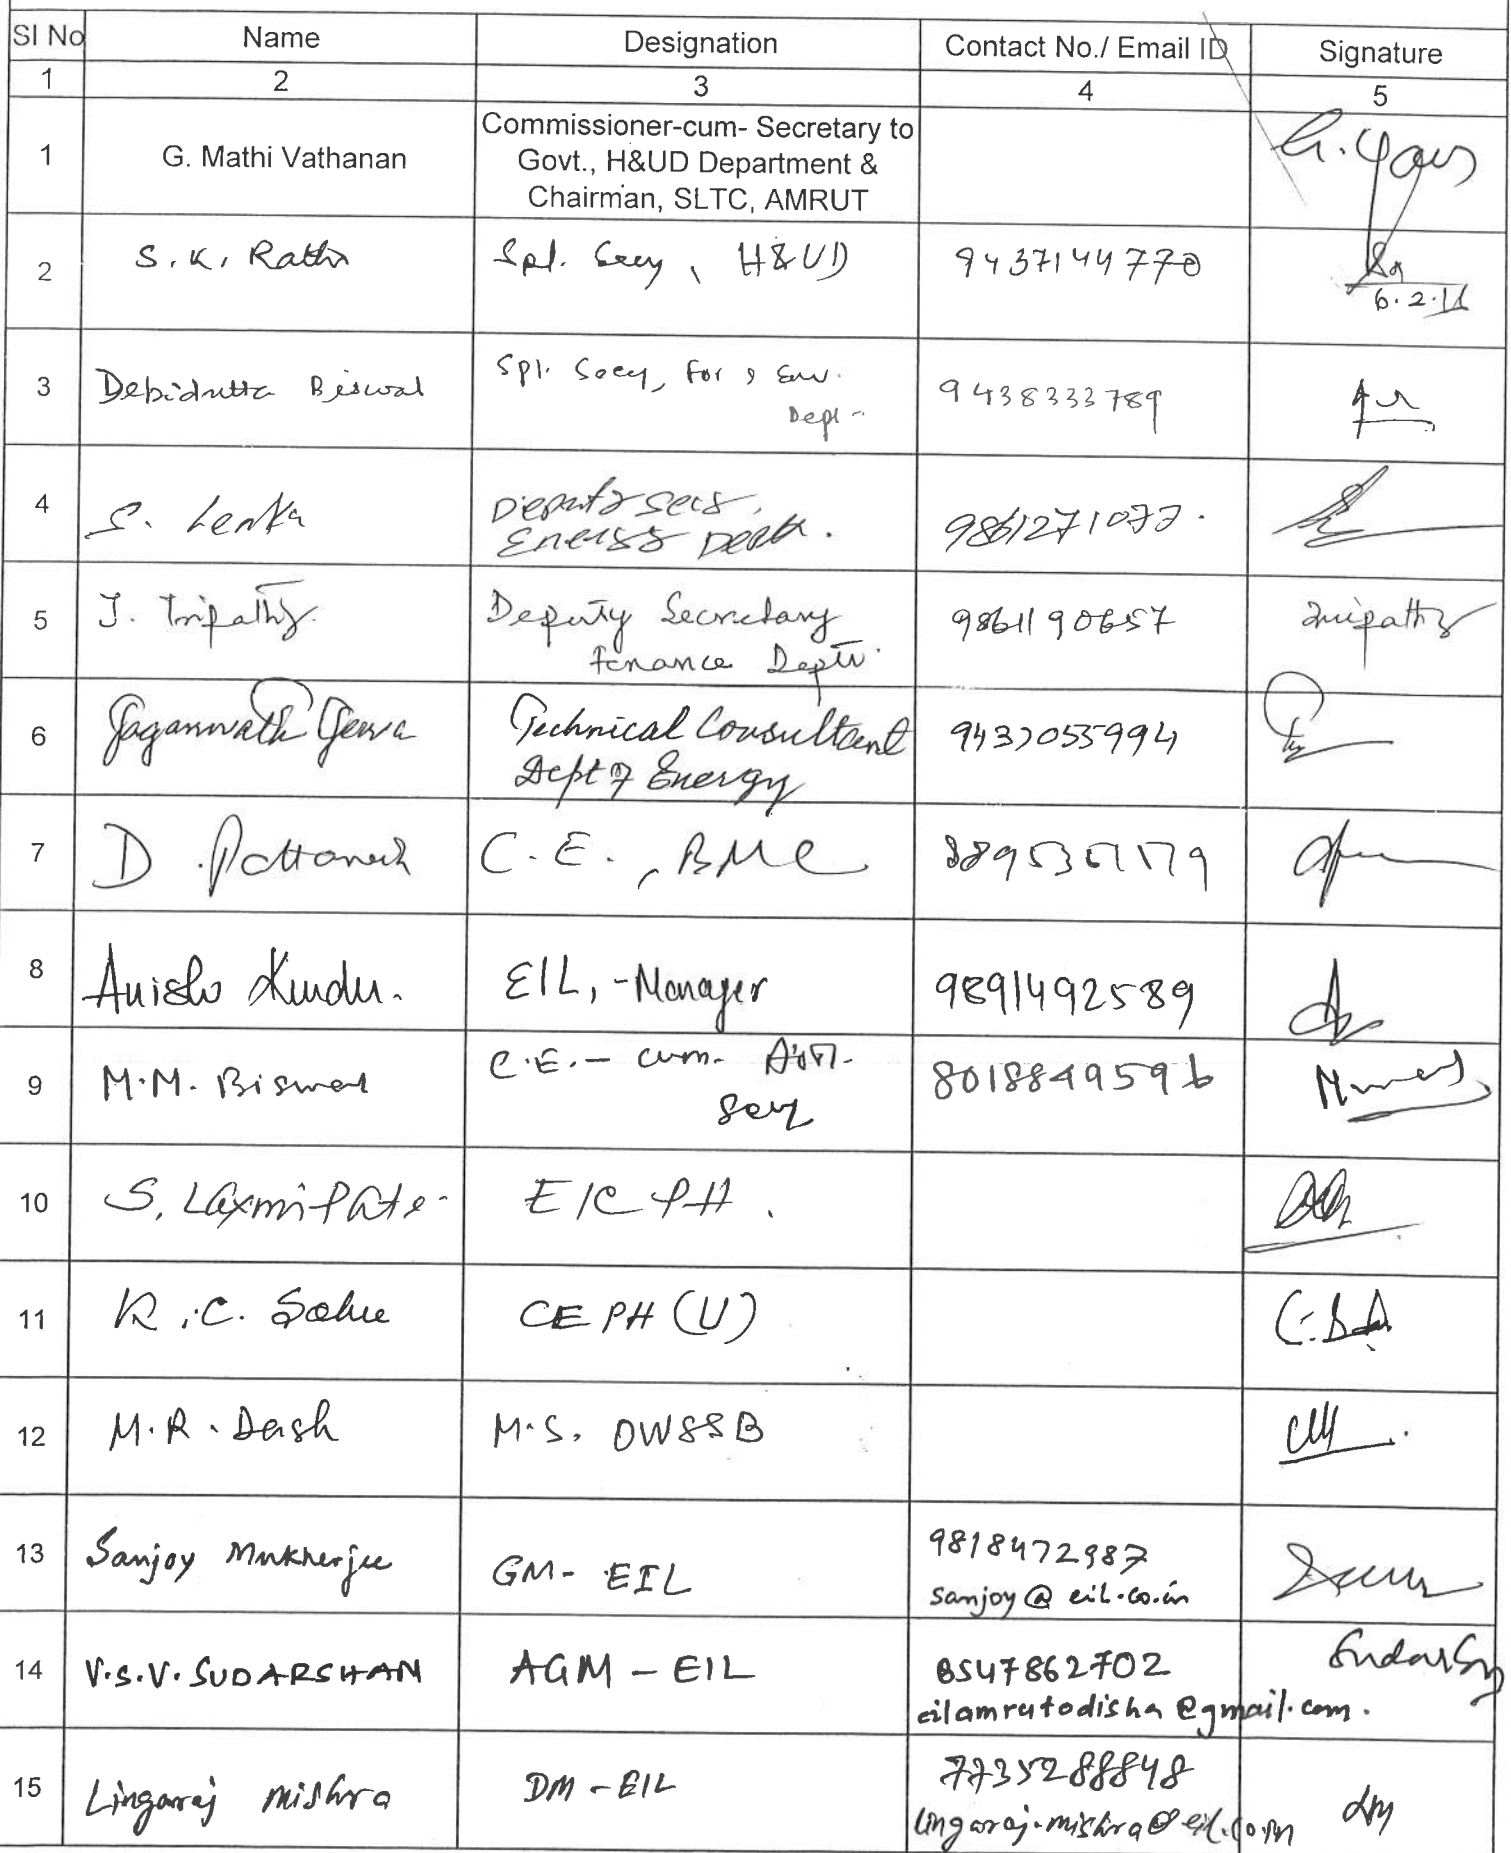 Sl No Name Designation Contact No./ Email ID Signature
1 2 3 4 5
1 G. Mathi Vathanan Commissioner-cum- Secretary to
Govt., H&UD Department &
Chairman, SLTC, AMRUT
2 S.K. Rath Spl. Secy, H&UD 9437144770
6.2.
3 Debidutta Biswal Spl. Secy, For & Env.
Dept 9438333789
4 S. Lenka Deputy Secy,
Energy Deptt. 9861271077.
5 J. Tripathy Deputy Secretary
Finance Deptt. 9861190657 Tripathy
6 Jagannath Jena Technical Consultant
Dept of Energy 9437055994
7 D. Pattanaik C.E., BMC
8 Kundu. EIL, -Manager 9891492589
9 M.M. Biswal C.E.- cum- 
Secy 8018849596
10 S. EIC PH.
11 R.C. Sahu CE PH (U)
12 M.R. Dash M.S. OWSSB
13 Sanjoy Mukherjee GM- EIL 9818472987
sanjoy@eil.co.in
14 V.S.V. SUDARSHAN AGM - EIL 8547862702 Sudarsan
eilamrutodisha@gmail.com.
15 Lingaraj Mishra DM - EIL 7735288848
lingaraj.mishra@eil.co.in